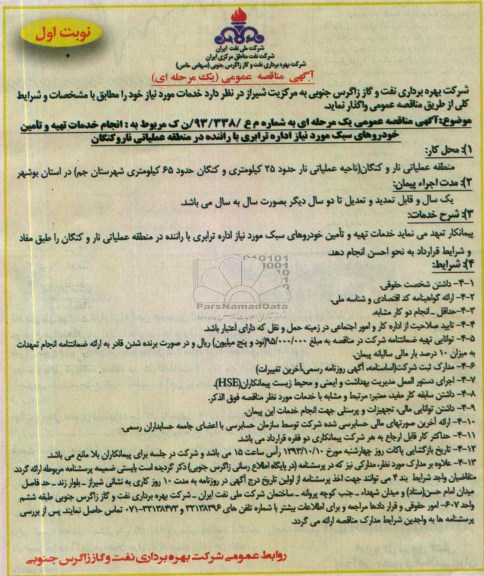 نوبت اول
شرکت ملی نفت ایران
شرکت نفت مناطق مرکزی ایران
شرکت بهره برداری نفت و گاز زاگرس جنوبی (سهامی خاص)
آگهی مناقصه عمومی (یک مرحله ای)
شرکت بهره برداری نفت و گاز زاگرس جنوبی به مرکزیت شیراز در نظر دارد خدمات مورد نیاز خود را مطابق با مشخصات و شرایط
کلی از طریق مناقصه عمومی واگذار نماید.
موضوع: آگهی مناقصه عمومی یک مرحله ای به شماره م ع /۹۳/۳۳۸/ن ک مربوط به : انجام خدمات تهیه و تأمین
خودروهای سبک مورد نیاز اداره ترابری با راننده در منطقه عملیاتی نار و کنگان
۱): محل کار:
منطقه عملیاتی نار و کنگان(ناحیه عملیاتی نار حدود ۲۵ کیلومتری و کنگان حدود ۶۵ کیلومتری شهرستان جم) در استان بوشهر
۲): مدت اجراء پیمان:
یک سال و قابل تمدید و تعدیل تا دو سال دیگر بصورت سال به سال می باشد.
۳): شرح خدمات:
پیمانکار تعهد می نماید خدمات تهیه و تأمین خودروهای سبک مورد نیاز اداره ترابری با راننده در منطقه عملیاتی نار و کنگان را طبق مفاد
و شرایط قرارداد به نحو احسن انجام دهد.
۴): شرایط:
ParsNamadData
۴-۱- داشتن شخصیت حقوقی.
۴-۲- ارائه گواهینامه کد اقتصادی و شناسه ملی.
۴-۳-حداقل ـ انجام دو کار مشابه.
۴-۴- تایید صلاحیت از اداره کار و امور اجتماعی در زمینه حمل و نقل که دارای اعتبار باشد.
۴-۵- توانایی تهیه ضمانتنامه شرکت در مناقصه به مبلغ ۹۵/۰۰۰/۰۰۰(نود و پنج میلیون) ریال و در صورت برنده شدن قادر به ارائه ضمانتنامه انجام تعهدات
به میزان ۱۰ درصد بار مالی سالیانه پیمان.
۴-۶- مدارک ثبت شرکت(اساسنامه، آگهی روزنامه رسمی،آخرین تغییرات)
۴-۷- اجرای دستور العمل مدیریت بهداشت و ایمنی و محیط زیست پیمانکاران(HSE).
۴-۸- داشتن سابقه کار مفید، معتبر: مرتبط و مشابه با خدمات مورد نظر مناقصه فوق الذکر.
۴-۹- داشتن توانایی مالی، تجهیزات و پرسنلی جهت انجام خدمات این پیمان.
۴-۱۰- ارائه آخرین صورتهای مالی حسابرسی شده شرکت توسط سازمان حسابرسی یا اعضای جامعه حسابداران رسمی.
۴-۱۱- حداکثر کار قابل ارجاع به هر شرکت پیمانکاری دو فقره قرارداد می باشد.
۴-۱۲- تاریخ بازگشایی پاکات روز چهارشنبه مورخ ۱۳۹۳/۱۰/۱۰ رأس ساعت ۱۵ می باشد و شرکت در جلسه برای پیمانکاران بلا مانع می باشد.
۴-۱۳- علاوه بر مدارک مورد نظر، مدارکی نیز که در پرسشنامه (در پایگاه اطلاع رسانی زاگرس جنوبی) ذکر گردیده است بایستی ضمیمه پرسشنامه مربوطه ارائه گردد
متقاضیان واجد شرایط بند ۴ می توانند جهت اخذ پرسشنامه از اولین تاریخ درج آگهی در روزنامه به مدت ۱۰ روز کاری به نشانی شیراز ـ بلوار زند ـ حد فاصل
میدان امام حسن(ستاد) و میدان شهداء ـ جنب کوچه پروانه ـ ساختمان شرکت ملی نفت ایران ـ شرکت بهره برداری نفت و گاز زاگرس جنوبی طبقه ششم
واحد ۶۰۷- امور حقوقی و قرار دادها مراجعه و برای اطلاعات بیشتر با شماره تلفن های ۳۲۱۳۸۳۹۶ و ۳۲۱۳۸۴۷۳-۰۷۱ تماس حاصل نمایند. پس از بررسی
پرسشنامه ها به واجدین شرایط مدارک مناقصه ارائه می گردد.
روابط عمومی شرکت بهره برداری نفت و گاز زاگرس جنوبی